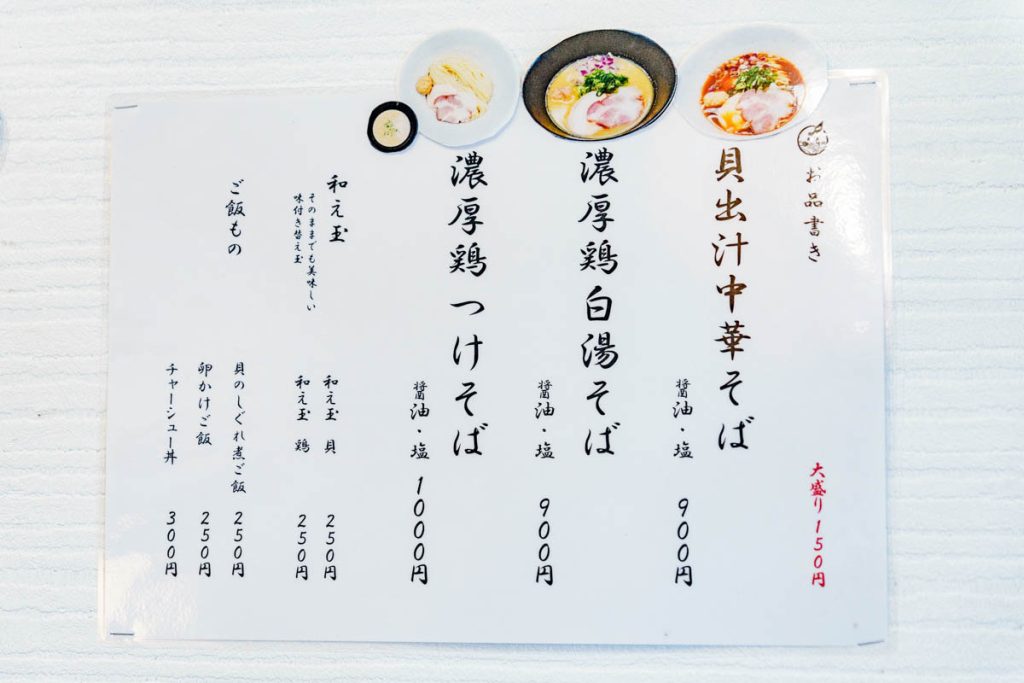 お品書き
大盛り150円
貝出汁中華そば
醤油・塩 900円
濃厚鶏白湯そば
醤油・塩 900円
濃厚鶏つけそば
醤油・塩 1000円
和え玉
そのままでも美味しい
味付き替え玉
和え玉 貝 250円
和え玉 鶏 250円
ご飯もの
貝のしぐれ煮ご飯 250円
卵かけご飯 250円
チャーシュー丼 300円